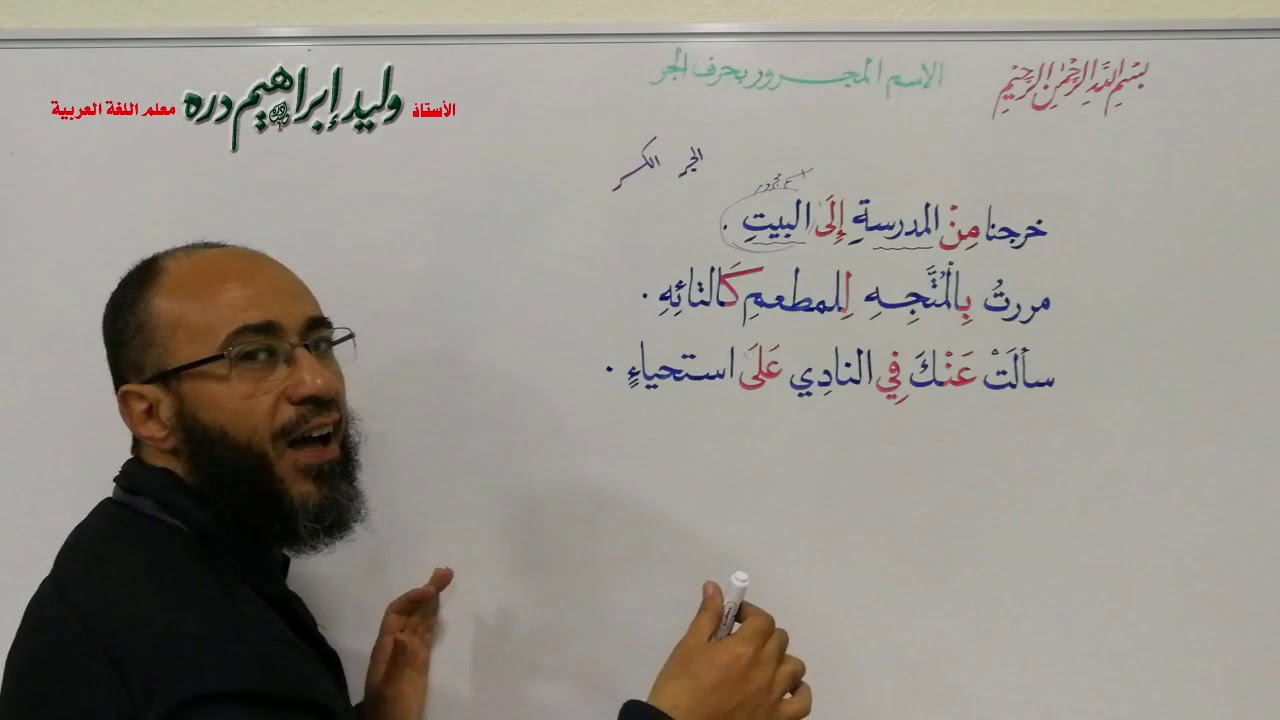 بِسْمِ اللَّهِ الرَّحْمَٰنِ الرَّحِيمِ
الاسم المجرور بحرف الجر
الأستاذ وليد إبراهيم دره معلم اللغة العربية
الجر الكسر
خرجنا مِنْ المدرسةِ إِلَى البيتِ .
مررتُ بِالْمُتَّجِهِ لِلمطعمِ كَالتائِهِ .
سألَتْ عَنْكَ فِي النادِي عَلَى استحياءٍ .